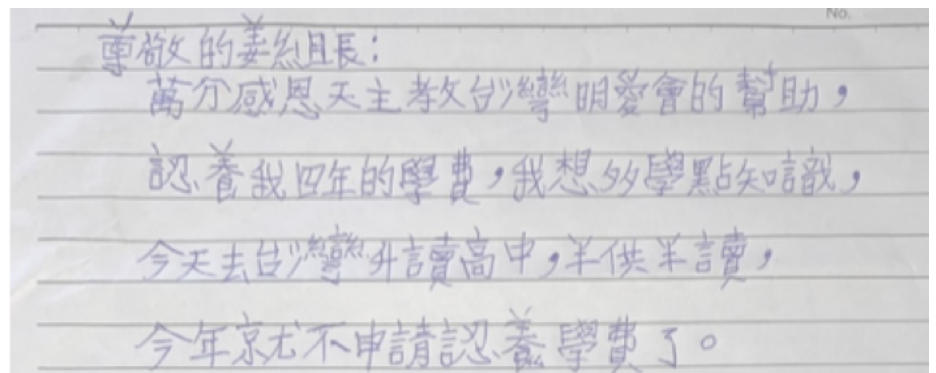 No.
尊敬的姜組長:
萬分感恩天主教台灣明愛會的幫助,
認養我四年的學費,我想多學點知識,
今天去台灣升讀高中,半供半讀,
今年就不申請認養學費了。